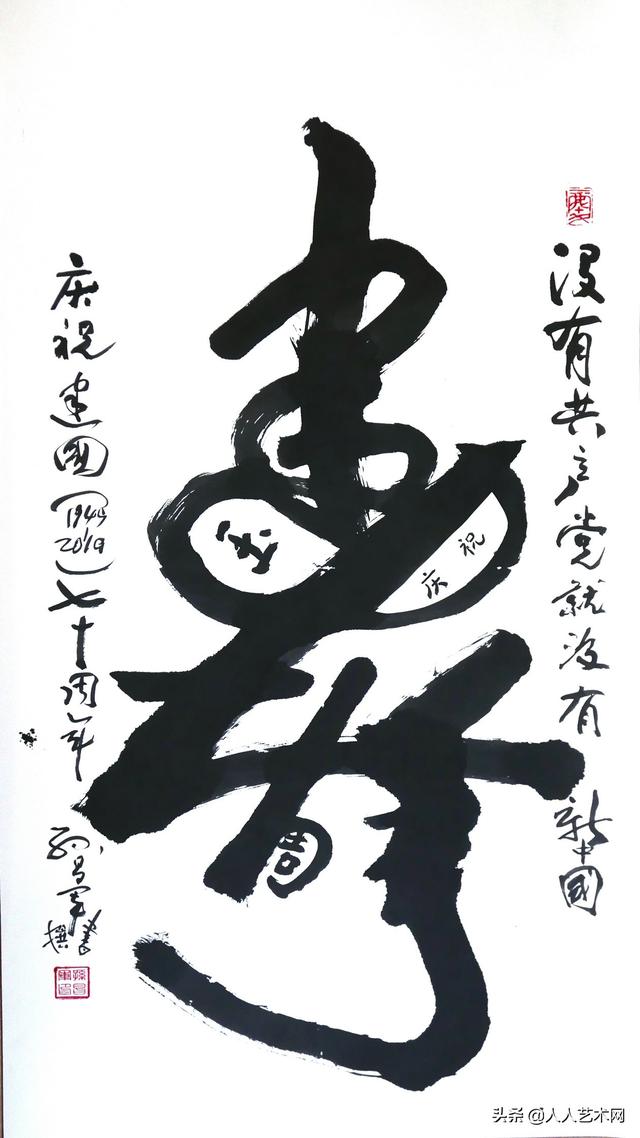 没有共产党就没有新中國
庆祝
周
庆祝建國
1949
2019
七十周年
孙昌军
撰書
头条 @人人艺术网